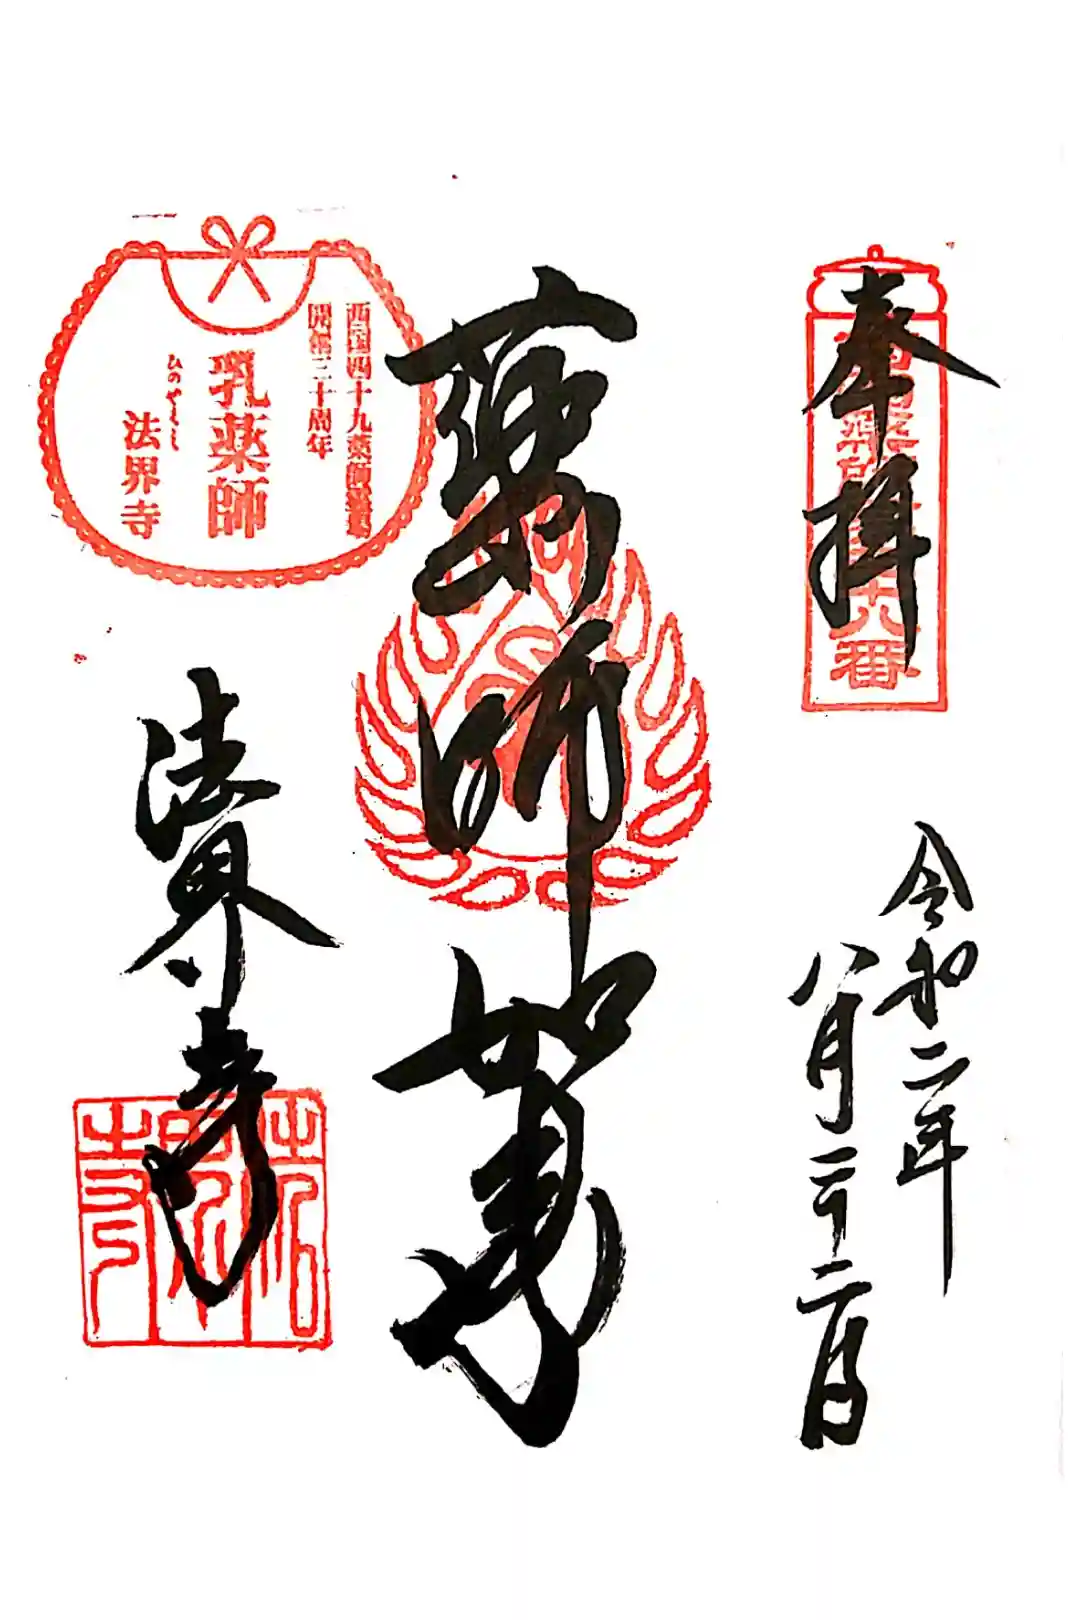 奉拝
八番
令和二年
八月二十二日
薬師如来
西国四十九薬師霊場
開創三十周年
乳薬師
ひのやくし
法界寺
法界寺
法界寺